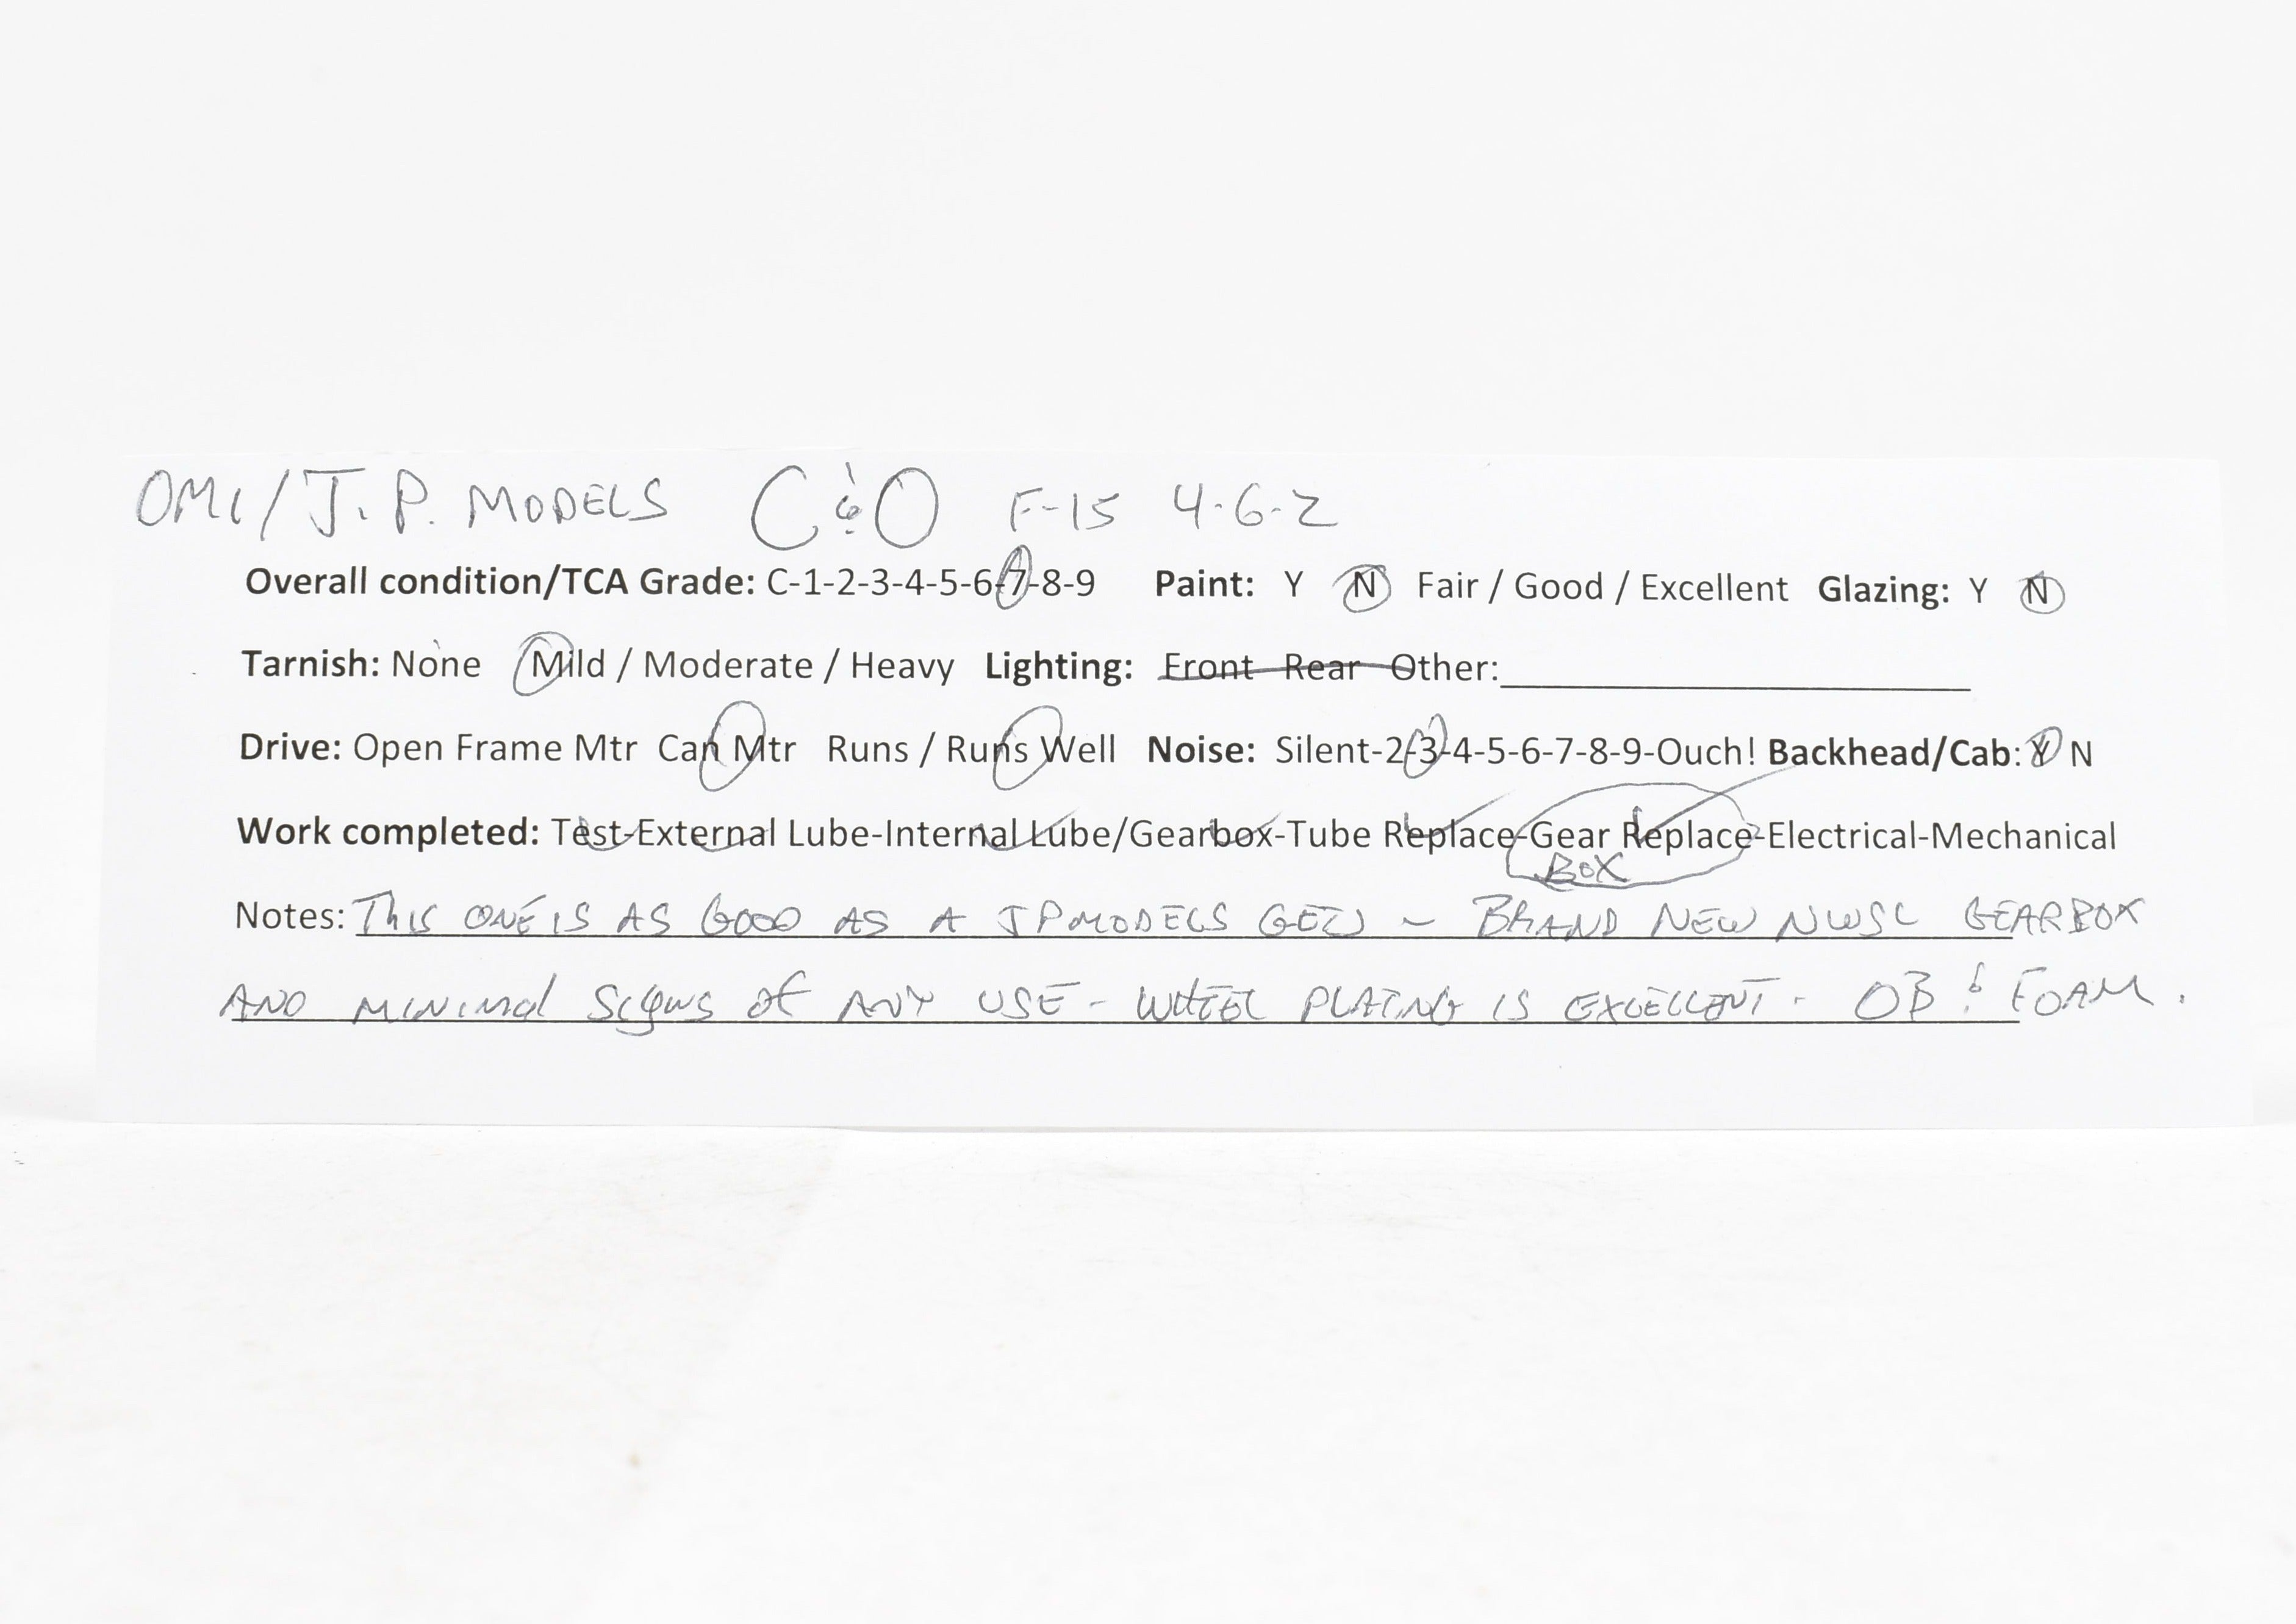 OMI/J.P. MODELS C&O F-15 4-6-2
Overall condition/TCA Grade: C-1-2-3-4-5-6-7-8-9 Paint: Y N Fair / Good / Excellent Glazing: Y N
Tarnish: None Mild / Moderate / Heavy Lighting: Front Rear Other:
Drive: Open Frame Mtr Can Mtr Runs / Runs Well Noise: Silent-2-3-4-5-6-7-8-9-Ouch! Backhead/Cab: Y N
Work completed: Test-External Lube-Internal Lube/Gearbox-Tube Replace-Gear Replace-Electrical-Mechanical
BOX
Notes: THIS ONE IS AS GOOD AS A JPMODELS GETS - BRAND NEW NWSL GEARBOX
AND MINIMAL SIGNS OF ANY USE - WHEEL PLATING IS EXCELLENT - OB & FOAM.